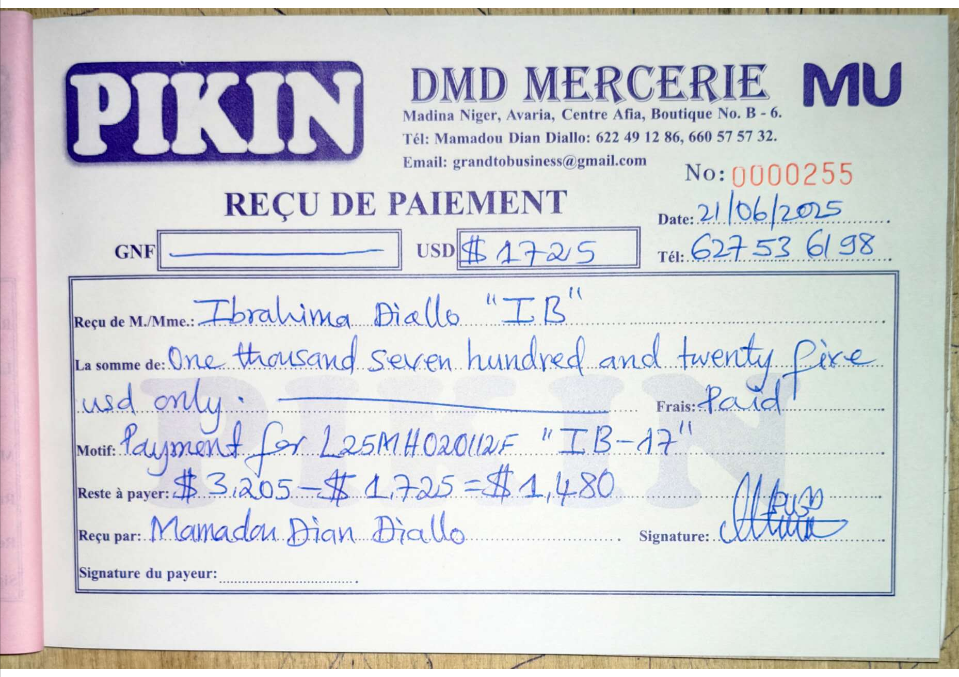 PIKIN
DMD MERCERIE MU
Madina Niger, Avaria, Centre Afia, Boutique No. B - 6.
Tél: Mamadou Dian Diallo: 622 49 12 86, 660 57 57 32.
Email: grandtobusiness@gmail.com
No: 0000255
REÇU DE PAIEMENT
Date: 21/06/2025
GNF USD $ 1725
Tél: 627 53 61 98
Reçu de M./Mme.: Ibrahima Diallo "IB"
La somme de: One thousand seven hundred and twenty five
usd only. Frais: Paid
Motif: Payment for L25MH020112F "IB-17"
Reste à payer: $ 3,205 - $ 1,725 = $ 1,480
Reçu par: Mamadou Dian Diallo Signature:
Signature du payeur:
PIKIN